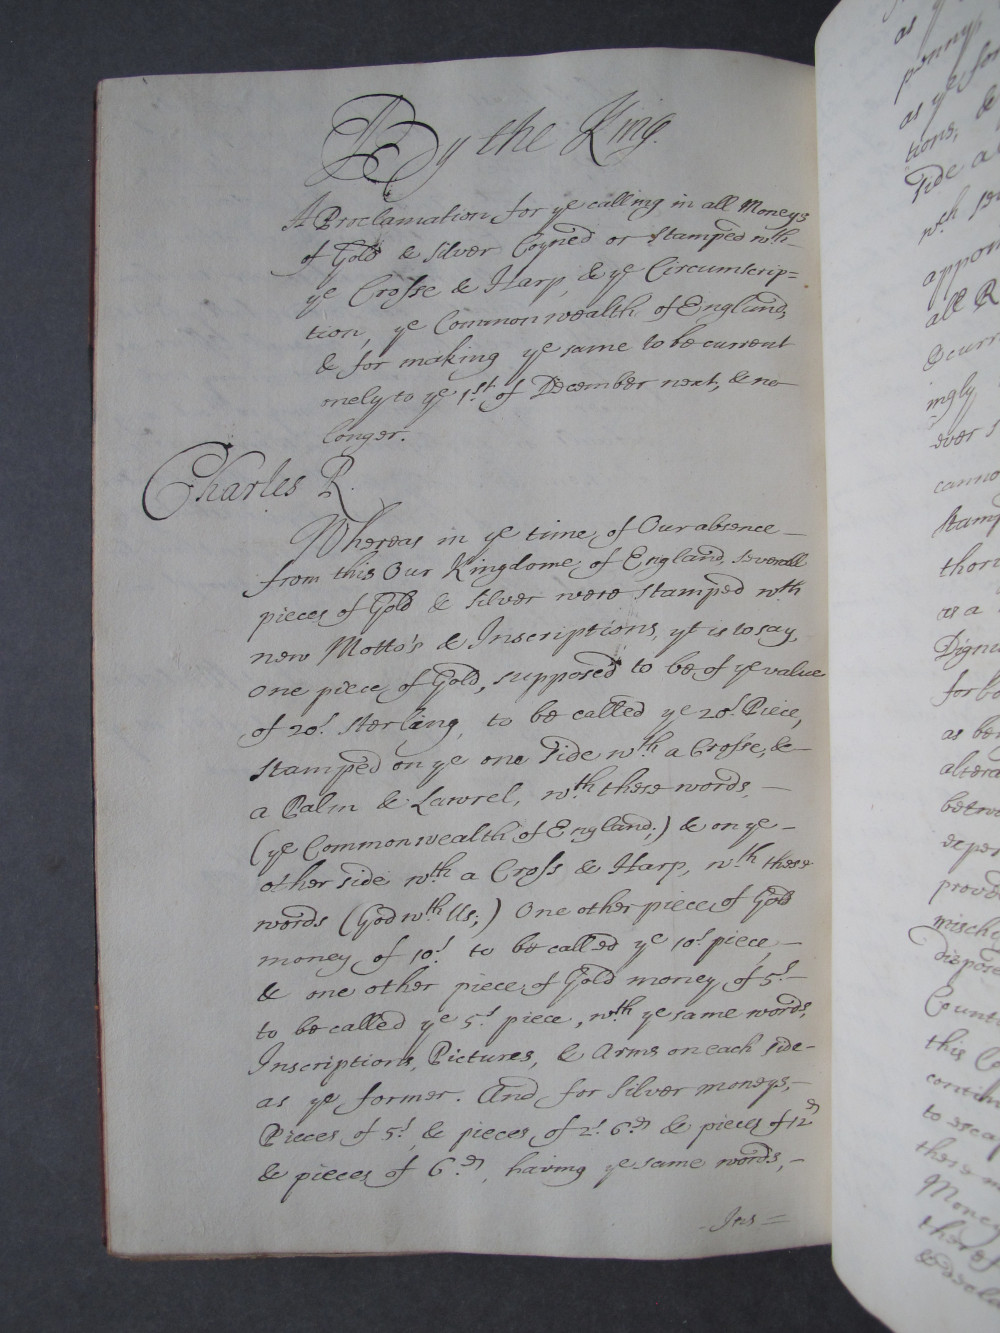 By the King.
A Proclamation for ye calling in all Moneys
of Gold & Silver Coyned or Stamped wth
ye Crosse & Harp, & ye Circumscrip=
tion, ye Commonwealth of England,
& for making ye same to be current
onely to ye 1st of December next, & no
longer.
Charles R.
Whereas in ye time of Our absence
from this Our Kingdome of England, severall
pieces of Gold & Silver were stamped wth
new Motto's & Inscriptions, yt is to say,
One piece of Gold, supposed to be of ye value
of 20s sterling, to be called ye 20s Piece,
stamped on ye one side wth a Crosse, &
a Palm & Lawrel, wth these words,
(ye Commonwealth of England;) & on ye
other side wth a Cross & Harp, wth these
words (God wth Us;) One other piece of Gold
money of 10s to be called ye 10s piece,
& one other piece of Gold money of 5s
to be called ye 5s piece, wth ye same words,
Inscriptions, Pictures, & Arms on each side
as ye former. And for Silver moneys,
Pieces of 5s & pieces of 2s 6d & pieces of 12d
& pieces of 6d, having ye same words,
Ins=
as
penny
as ye for
tions, &
side a
wth
appoin
all R
Occurr
ingly
ever s
canno
Stamp
thori
as a
Digni
forb
as ben
altera
betw
exper
provid
mischi
dispose
Count
this C
contin
to escap
these m
Money
thereof